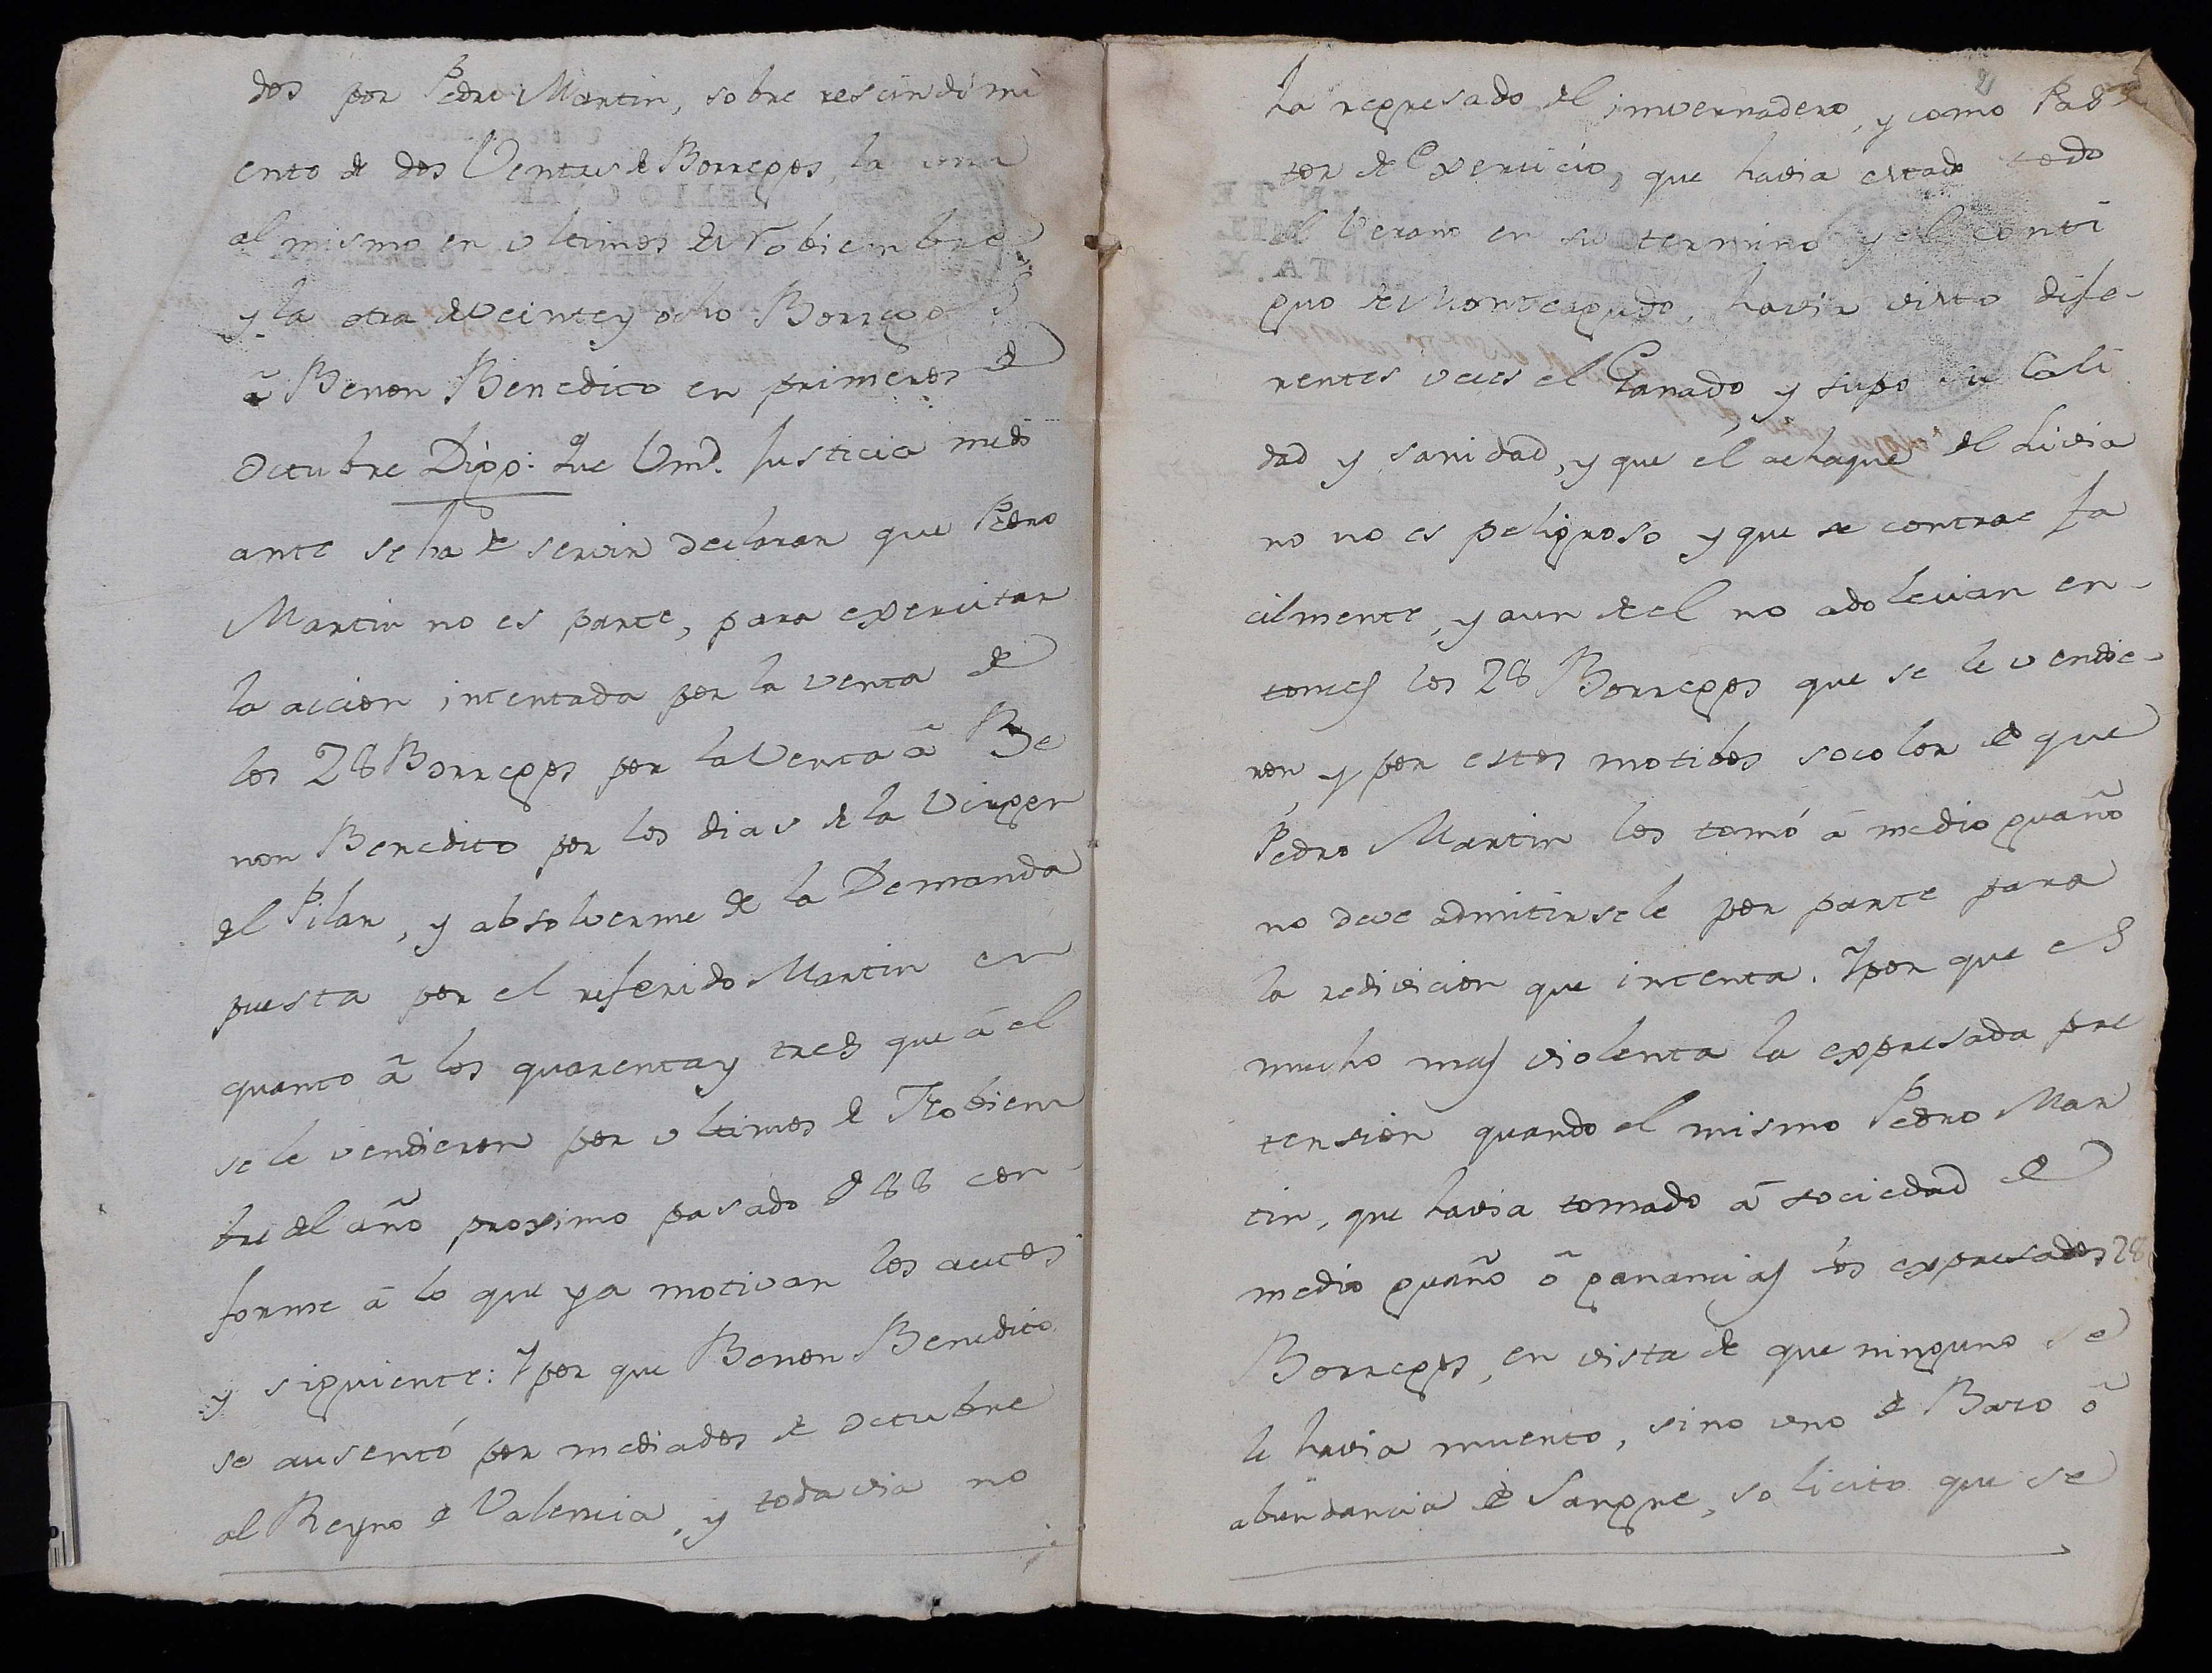 dos por Pedro Martin, sobre rescindimi
ento de dos Ventas de Borregos, la una
al mismo en ultimos de Nobiembre
y la otra de veinte y ocho Borregos
â Benon Benedico en primeros de
Octubre Digo: Que Vmd. Justicia medi
ante se ha de servir declarar que Pedro
Martin no es parte, para exercitar
la accion intentada por la venta de
los 28 Borregos por la Venta â Be
non Benedito por los dias de la Virgen
del Pilar, y absolverme de la Demanda
puesta por el referido Martin en
quanto â los quarenta y tres que â el
se le vendieron por ultimos de Nobiem
bre del año proximo pasado de 88 con
forme â lo que ya motivan los autos
y siguiente: Y por que Benon Benedico
se ausentó por mediados de Octubre
al Reyno de Valencia, y todavia no
ha regresado del invernadero, y como Pas
tor de Exercicio, que havia estado todo
el Verano en su termino y el conti
guo de Monteagudo, havia visto dife-
rentes veces el Ganado y supo su Cali
dad y sanidad, y que el achaque del Livia
no no es peligroso y que se contrae fa
cilmente, y aun de el no adolecian en-
tonces los 28 Borregos que se le vendie-
ron y por estos motibos socolor de que
Pedro Martin los tomó â medio guaño
no deve admitirsele por parte para
la redivicion que intenta. Y por que es
mucho mas violenta la expresada pre
tension quando el mismo Pedro Mar
tin, que havia tomado â sociedad de
medio guaño ô ganancias los expresados 28
Borregos, en vista de que ninguno se
le havia muerto, sino uno de Bazo ô
abundancia de Sangre, solicito que se